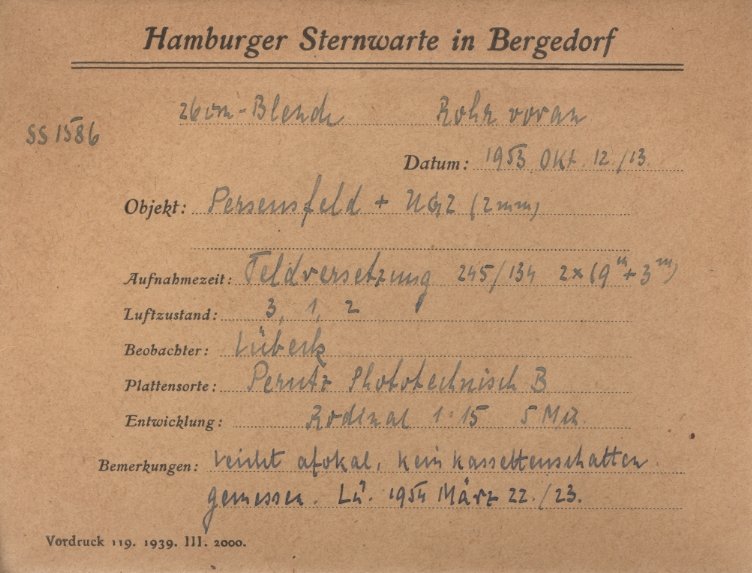 Hamburger Sternwarte in Bergedorf
26cm-Blende Rohr voran
SS 1586
Datum: 1953 Okt. 12/13
Objekt: Perseusfeld + UG2 (2mm)
Aufnahmezeit: Feldversetzung 245/134 2×(9ᵐ+3ᵐ)
Luftzustand: 3, 1, 2
Beobachter: Lübeck
Plattensorte: Perutz Phototechnisch B
Entwicklung: Rodinal 1:15 5 Min.
Bemerkungen: leicht afokal, kein Kassettenschatten.
gemessen. Lü. 1954 März 22./23.
Vordruck 119. 1939. III. 2000.